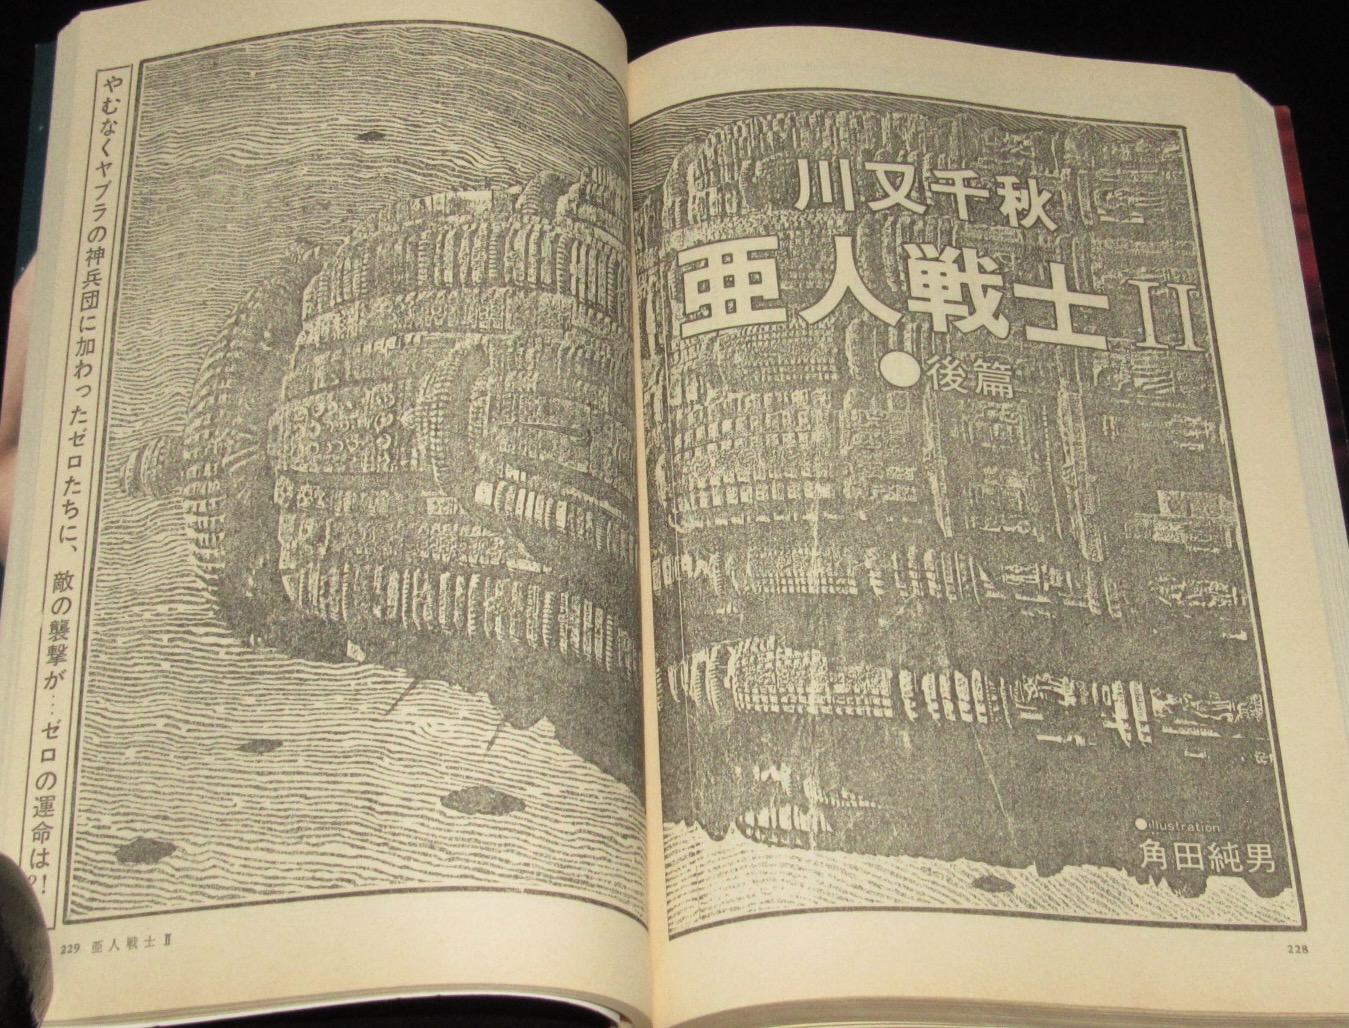 川又千秋
亜人戦士II
●後篇
●illustration
角田純男
228
やむなくヤプラの神兵団に加わったゼロたちに、敵の襲撃が…ゼロの運命は?!
229 亜人戦士II